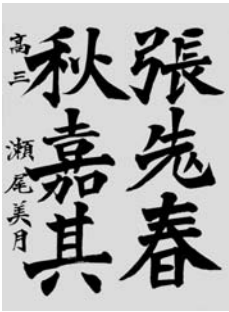 張先春
秋嘉其
高三 瀬尾美月